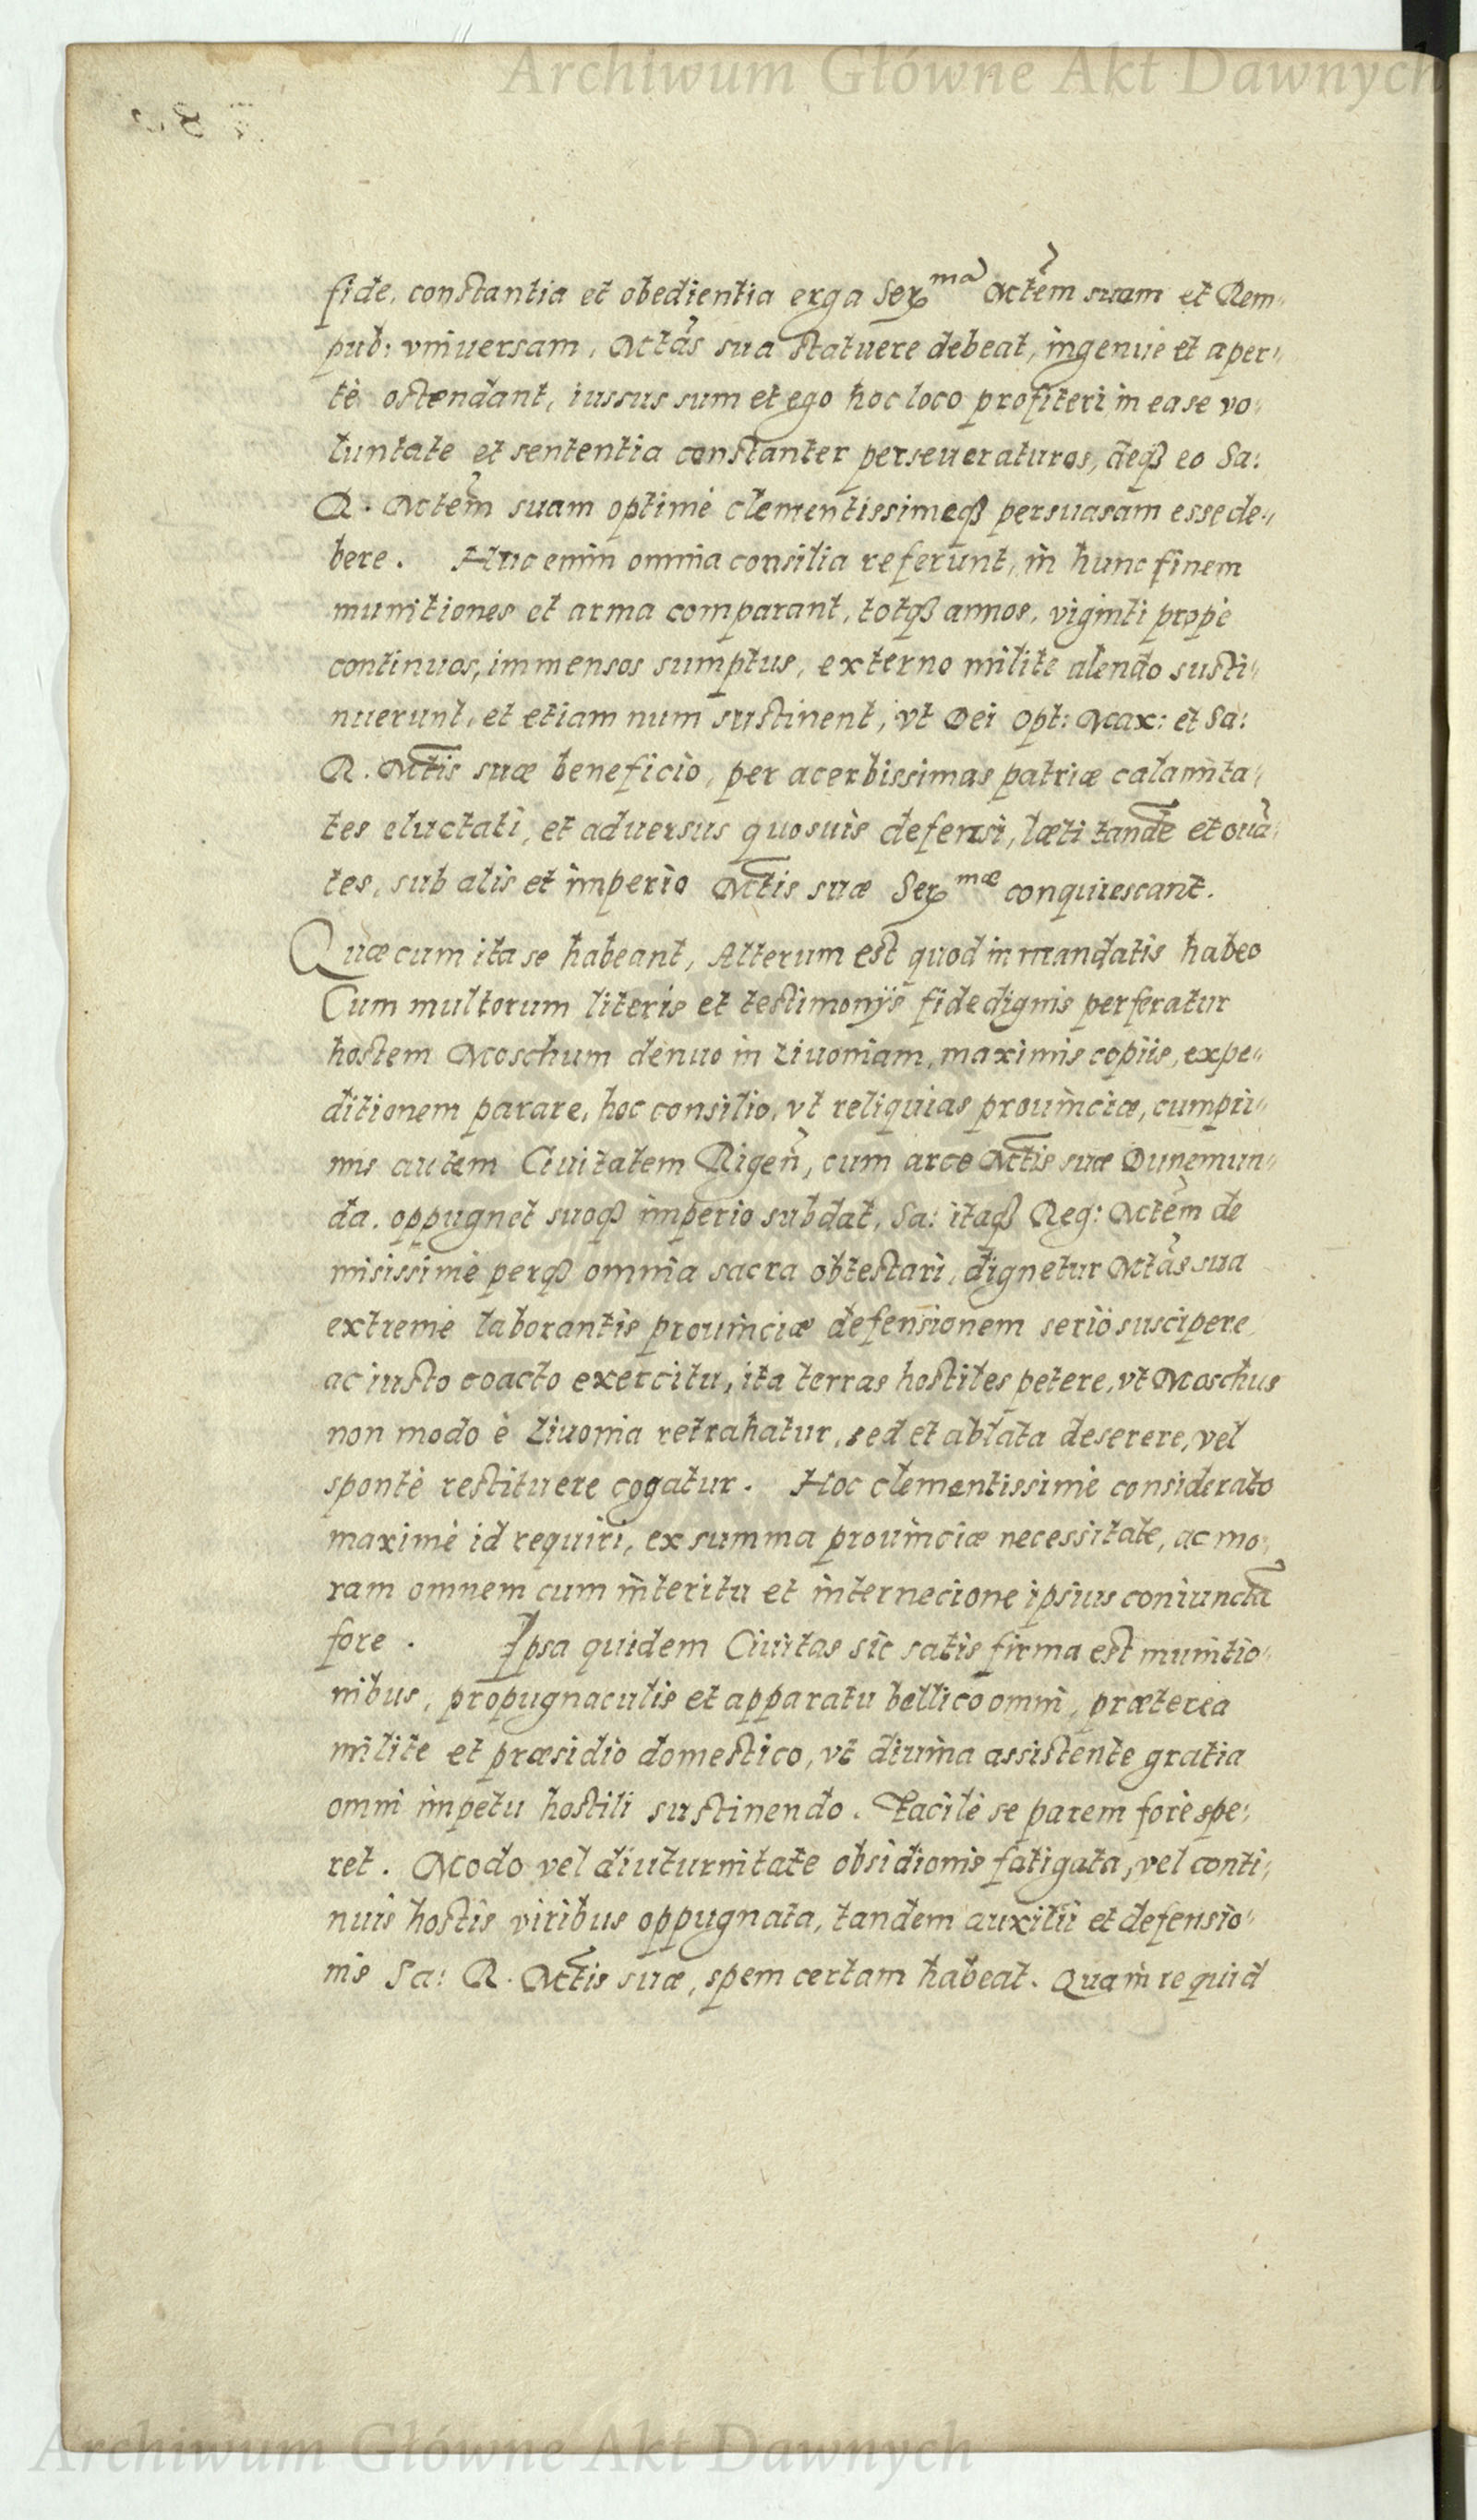 Archiwum Główne Akt Dawnych
fide, constantia et obedientia erga Ser^mã Mtem suam et Rem„
pub: vniuersam, Mtas sua statuere debeat, ingenue et aper„
tè ostendant, iussus sum et ego hoc loco profiteri in ea se vo„
luntate et sententia constanter perseueraturos, deqꝫ eo Sa:
R. Mtem suam optimè clementissimeqꝫ persuasam esse de„
bere. Huc enim omnia consilia referunt, in hunc finem
munitiones et arma comparant, totqꝫ annos, viginti propè
continuos, immensos sumptus, externo milite alendo susti„
nuerunt, et etiam num sustinent, vt Dei Opt: Max: et Sa:
R. Mtis suæ beneficio, per acerbissimas patriæ calamita„
tes eluctati, et aduersus quosuis defensi, læti tandē et ouā„
tes, sub alis et imperio Mtis suæ Ser^mæ conquiescant.
Quæ cum ita se habeant, Alterum est quod in mandatis habeo
Cum multorum literis et testimonijs fide dignis perferatur
hostem Moschum denuo in Liuoniam, maximis copiis, expe„
ditionem parare, hoc consilio, vt reliquias prouinciæ, cumpri„
mis autem Ciuitatem Rigeñ, cum arce Mtis suæ Dunemun„
da, oppugnet suoqꝫ imperio subdat, Sa: itaqꝫ Reg: Mtem de
misissimè perqꝫ omnia sacra obtestari, dignetur Mtas sua
extremè laborantis prouinciæ defensionem seriò suscipere,
ac iusto coacto exercitu, ita terras hostiles petere, vt Moschus
non modo è Liuonia retrahatur, sed et ablata deserere, vel
spontè restituere cogatur. Hoc clementissimè considerato
maximè id requiri, ex summa prouinciæ necessitate, ac mo„
ram omnem cum interitu et internecione ipsius coniunctã
fore. Ipsa quidem Ciuitas sic satis firma est munitio„
nibus, propugnaculis et apparatu bellico omni, præterea
milite et præsidio domestico, vt diuina assistente gratia
omni impetu hostili sustinendo. Facilè se parem fore spe„
ret. Modo vel diuturnitate obsidionis fatigata, vel conti„
nuis hostis viribus oppugnata, tandem auxilii et defensio„
nis Sa: R. Mtis suæ, spem certam habeat. Qua in re quid
Archiwum Główne Akt Dawnych